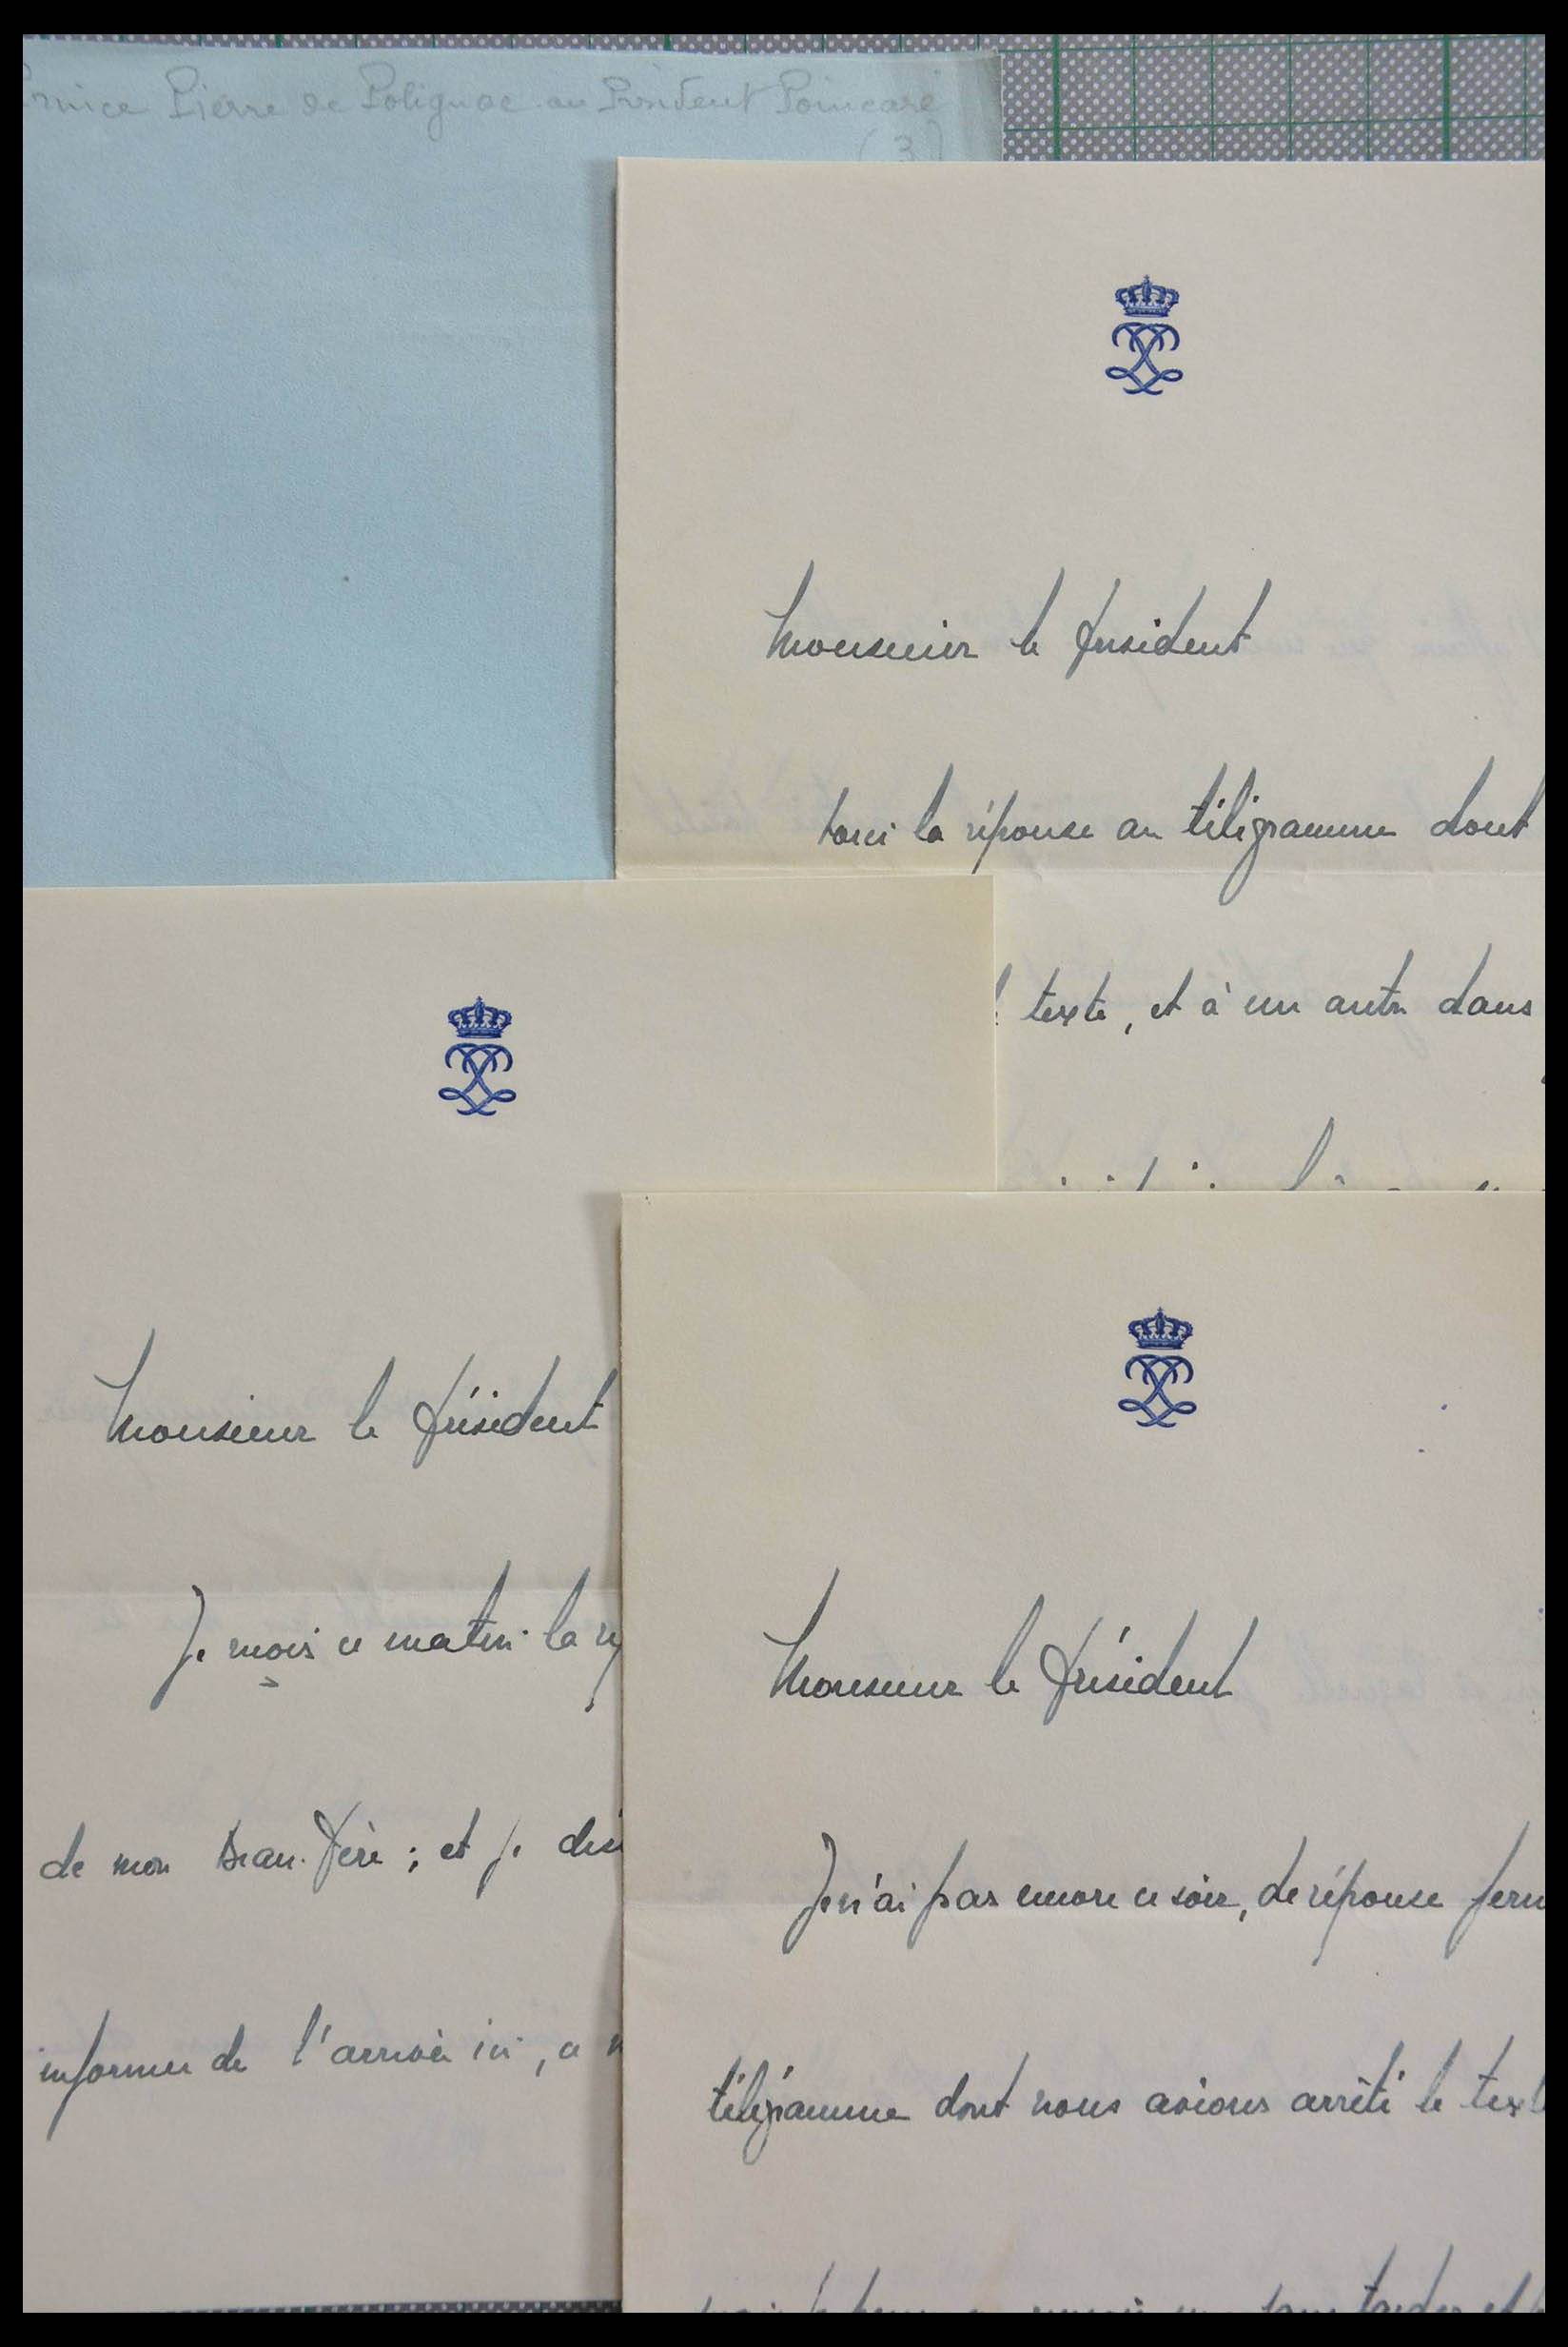 Prince Pierre de Polignac au Président Poincaré
(3)
Monsieur le Président
Voici la réponse au télégramme dont
texte, et à un autre dans
Monsieur le Président
Je reçois ce matin la
de mon Beau-Père ; et je
informer de l'arrivée ici, a
Monsieur le Président
Je n'ai pas encore ce soir, de réponse
télégramme dont nous avions arrêté le